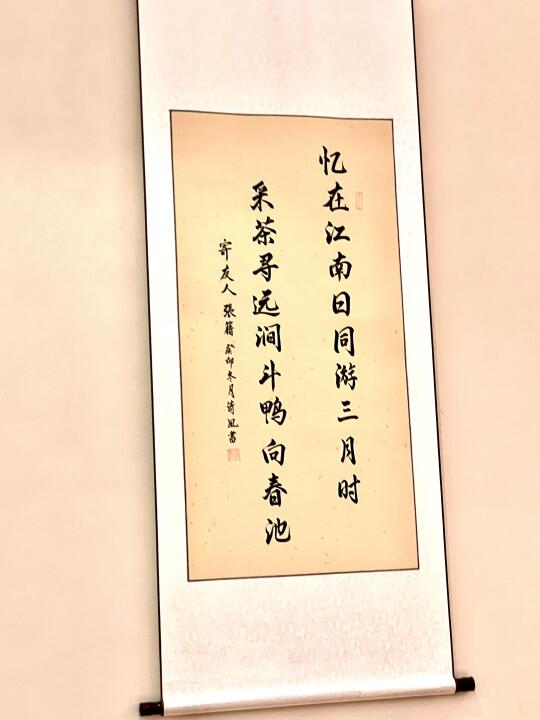 忆在江南日同游三月时
采茶寻远涧斗鸭向春池
寄友人張籍癸卯冬月诗风書